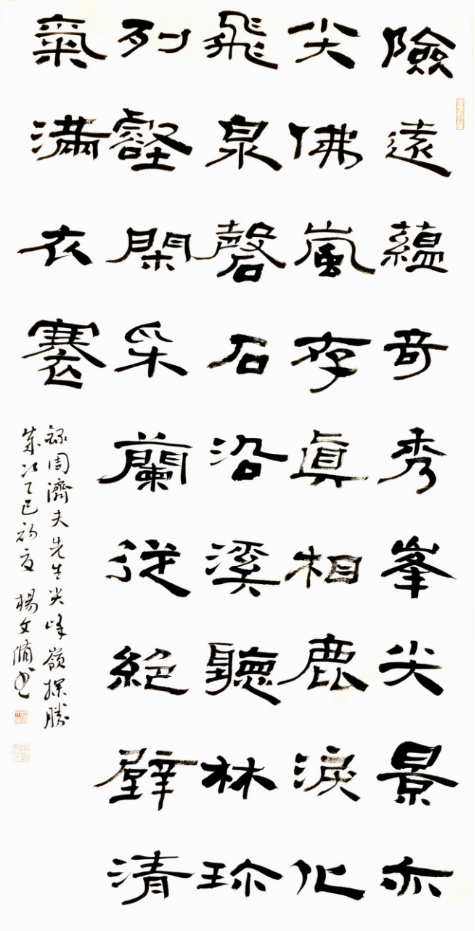 險遠蘊奇秀峯尖景亦
尖佛嵐存眞相鹿淚化
飛泉磬石沿溪聽林珎
列壑閑采蘭從絕壁清
氣滿衣褰
録周濟夫先生尖峰嶺探勝
乙巳初夏 楊文書